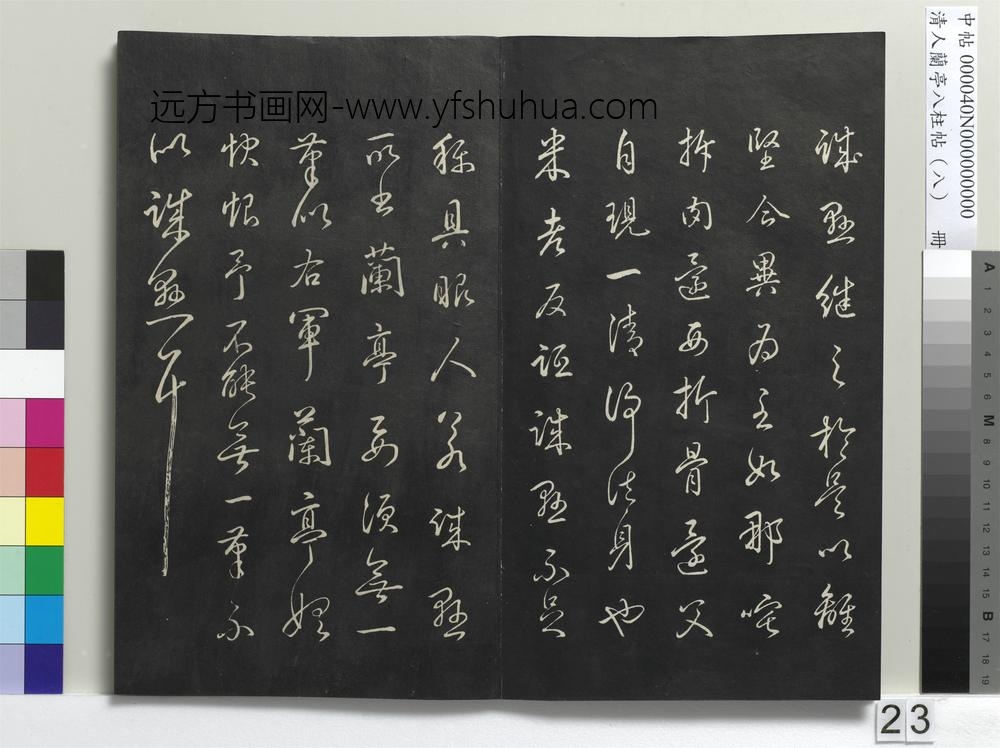 中帖 000040N000000000
清人蘭亭八柱帖（八） 冊
誠懸継之於是以離
堅合異為主如那吒
拆肉還母析骨還父
自現一清淨法身也
米老反詆誠懸不足
稱具眼人若誠懸
所書蘭亭要須無一
筆似右軍蘭亭始
快恨予不能無一筆不
似誠懸耳
远方书画网-www.yfshuhua.com
A 1 2 3 4 5 6 M 8 9 10 11 12 13 14 15 B 17 18 19
23